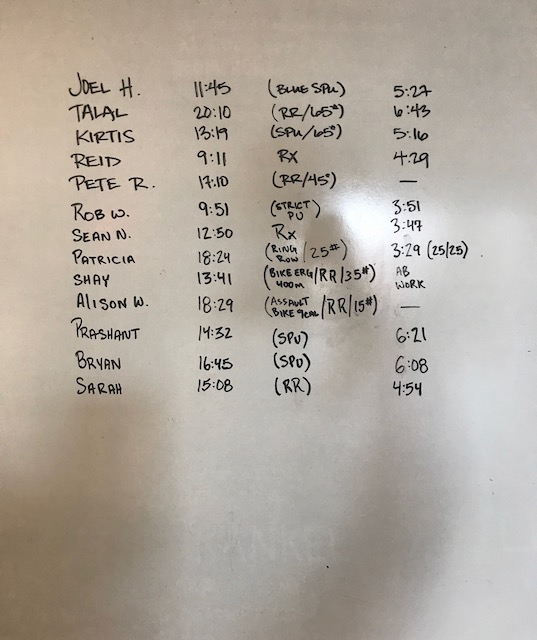 JOEL H. 11:45 (BLUE SPU) 5:27
TALAL 20:10 (RR/65#) 6:43
KIRTIS 13:19 (SPU/65#) 5:16
REID 9:11 RX 4:29
PETE R. 17:10 (RR/45#) —
ROB W. 9:51 (STRICT PU) 3:51
SEAN N. 12:50 RX 3:47
PATRICIA 18:24 (RING ROW/25#) 3:29 (25/25)
SHAY 13:41 (BIKE ERG 400M/RR/35#) AB WORK
ALISON W. 18:29 (ASSAULT BIKE 9CAL/RR/15#) —
PRASHANT 14:32 (SPU) 6:21
BRYAN 16:45 (SPU) 6:08
SARAH 15:08 (RR) 4:54